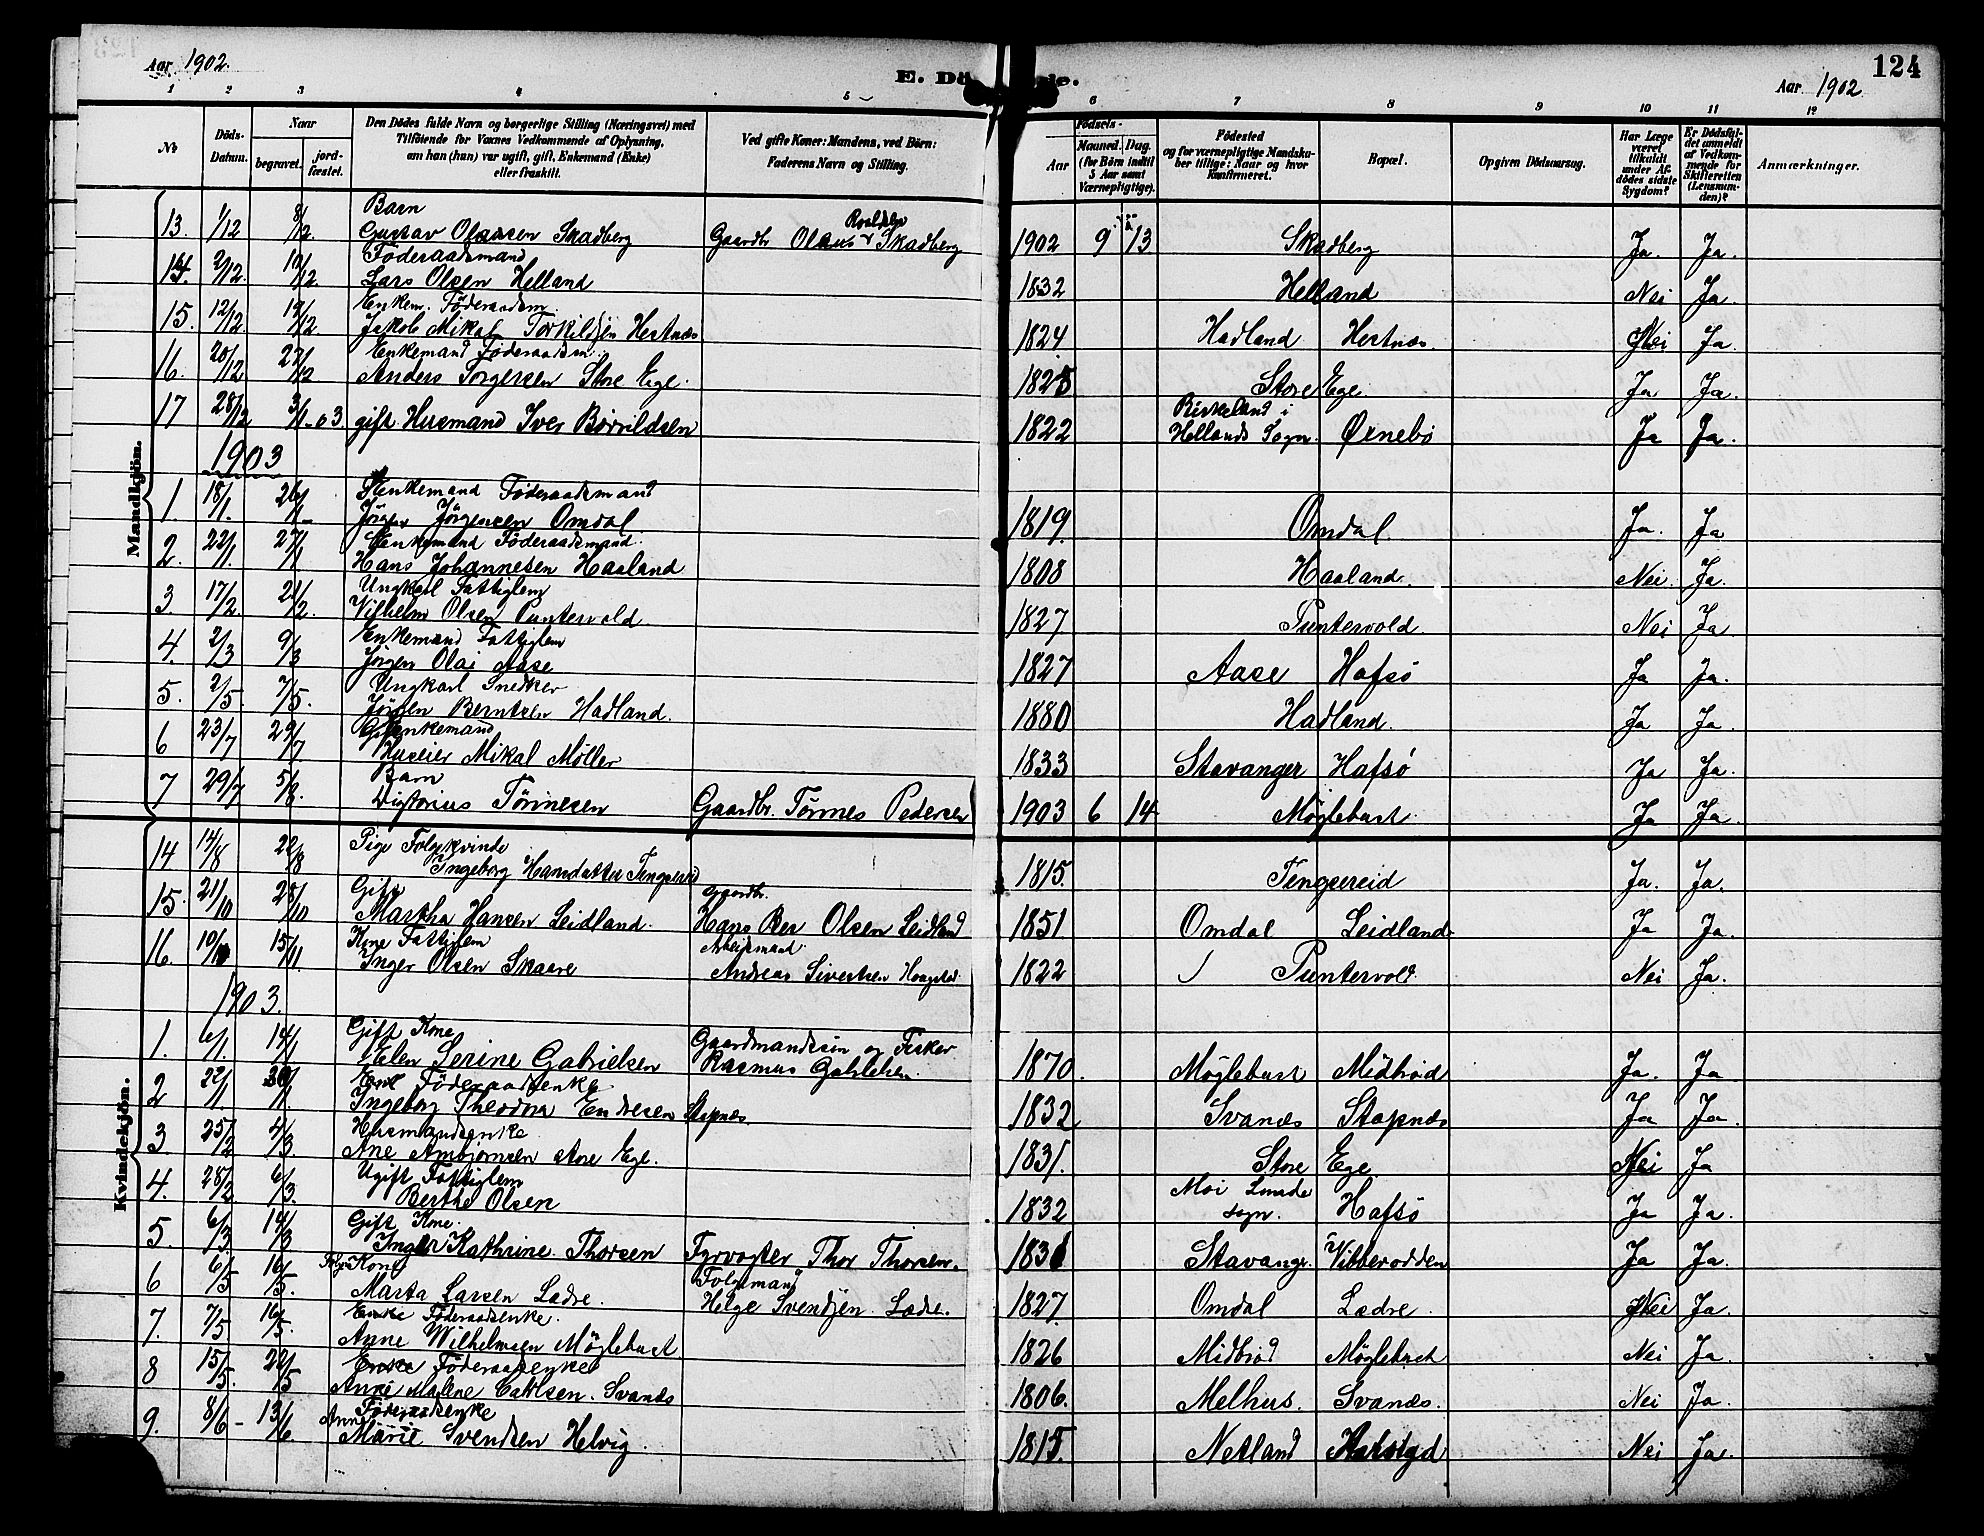 Aar 1902.
E. Dö de.
Aar 1902
124
1 2 3 4 5 6 7 8 9 10 11 12
No
Döds-Datum.
Naar
begravet.
jord-fæstet.
Den Dödes fulde Navn og borgerlige Stilling (Næringsvei) med
Tilföiende for Voxnes Vedkommende af Oplysning,
om han (hun) var ugift, gift, Enkemand (Enke)
eller fraskilt.
Ved gifte Koner: Mandens, ved Börn:
Faderens Navn og Stilling.
Födsels-
Aar
Maaned. Dag.
(for Börn indtil
5 Aar samt
Værnepligtige).
Födested
og for værnepligtige Mandska-
ber tillige: Naar og hvor
Konfirmeret.
Bopæl.
Opgiven Dödsaarsag.
Har Læge
været
tilkaldt
under Af-
dödes sidste
Sygdom?
Er Dödsfal-
det anmeldt
af Vedkom-
mende for
Skifteretten
(Lensman-
den)?
Anmærkninger.
Mandkjön.
Barn
13. 1/12 8/12. Gustav Olausen Skadberg Gaardbr Olaus Skadberg 1902 9 13. Skadberg Ja. Ja.
Föderaadsmand
14. 2/12. 10/12 Lars Olsen Helland 1832 Helland Nei Ja.
Enkem. Föderaadsm
15. 12/12 19/12 Jakob Mikal Torkildsen Hestnæs 1824 Hadland Hestnæs. Nei Ja.
Enkemand Föderaadsm.
16. 20/12 27/12 Anders Torgersen Store Ege. 1825 Store Ege Ja Ja.
17 28/12 3/1-03. gift Husmand Iver Börrildsen 1822 Birkeland i Hellands Sogn. Ørnebö Ja Ja.
1903
Enkemand Föderaadsmand
1. 18/1. 26/1 Jörgen Jörgensen Omdal 1819. Omdal. Ja. Ja
Enkemand Föderaadsmand.
2. 22/1. 27/1 Hans Johannesen Haaland 1808 Haaland. Nei. Ja.
Ungkarl Fattiglem
3. 17/2. 21/2. Vilhelm Olsen Puntervold. 1827 Puntervold. Nei Ja.
Enkemand Fattiglem
4. 2/3 9/3 Jörgen Olai Aase 1827 Aase Hafsö Ja Ja.
Ungkarl Snedker
5. 2/5. 7/5. Jörgen Berntsen Hadland. 1880 Hadland. Ja Ja.
Enkemand
6 23/7 29/7 Huseier Mikal Møller 1833 Stavanger Hafsö Ja Ja.
Barn
7 29/7 5/8. Digtorius Törinesen Gaardbr. Törnes Pedersen 1903 6 14 Möglebust. Ja Ja.
Kvindekjön.
Pige Folgekvinde
14 14/8 22/8 Ingeborg Hansdatter Tengsereid 1815. Tengsereid Ja. Ja.
Gift Gaardbr.
15. 21/10 28/10 Martha Hansen Leidland. Hans Ber Olsen Leidland 1851 Omdal Leidland. Ja Ja.
Kone Fattiglem Arbeidsmand.
16. 10/11 15/11. Inger Olsen Skaare Andreas Sivertsen 1822 Puntervold. Nei Ja.
1903.
Gift Kone Gaardmandssön og Fisker
1. 6/1. 14/1 Elen Serine Gabrielsen Rasmus Gabrielsen. 1870. Möglebust Midbröd Ja. Ja
Föderaadsenke
2 22/1 30/1. Ingeborg Theodora Endresen Stapnæs. 1832 Svanæs Stapnæs Ja Ja.
Husmandsenke.
3 25/2 4/3. Ane Ambjörnsen store Ege. 1831. Store Ege Nei Ja
Ugift Fattiglem
4. 28/2. 6/3. Berthe Olsen 1832 Moi Lunde sogn. Hafsö Ja Ja.
Gift Kone.
5 6/3 14/3 Inger Kathrine Thorsen Fyrvogter Thor Thorsen. 1831 Stavanger. Vibberodden Ja Ja.
Folge Kone Folgemand
6 6/5 16/5. Marta Larsen Lædre. Helge Svendsen Lædre. 1827. Omdal Lædre. Nei Ja.
Enke Föderaadsenke.
7. 7/5 16/5. Anne Wilhelmsen Möglebust 1826 Midbröd Möglebust Nei Ja.
Enke Föderaadsenke
8 15/5. 22/5 Anne Malene Carlsen. Svanæs 1806. Melhus. Svanæs. Nei Ja.
Föderaadsenke
9. 8/6 - 13/6 Anne Marie Svendsen Helvig. 1815. Netland Nei Ja.